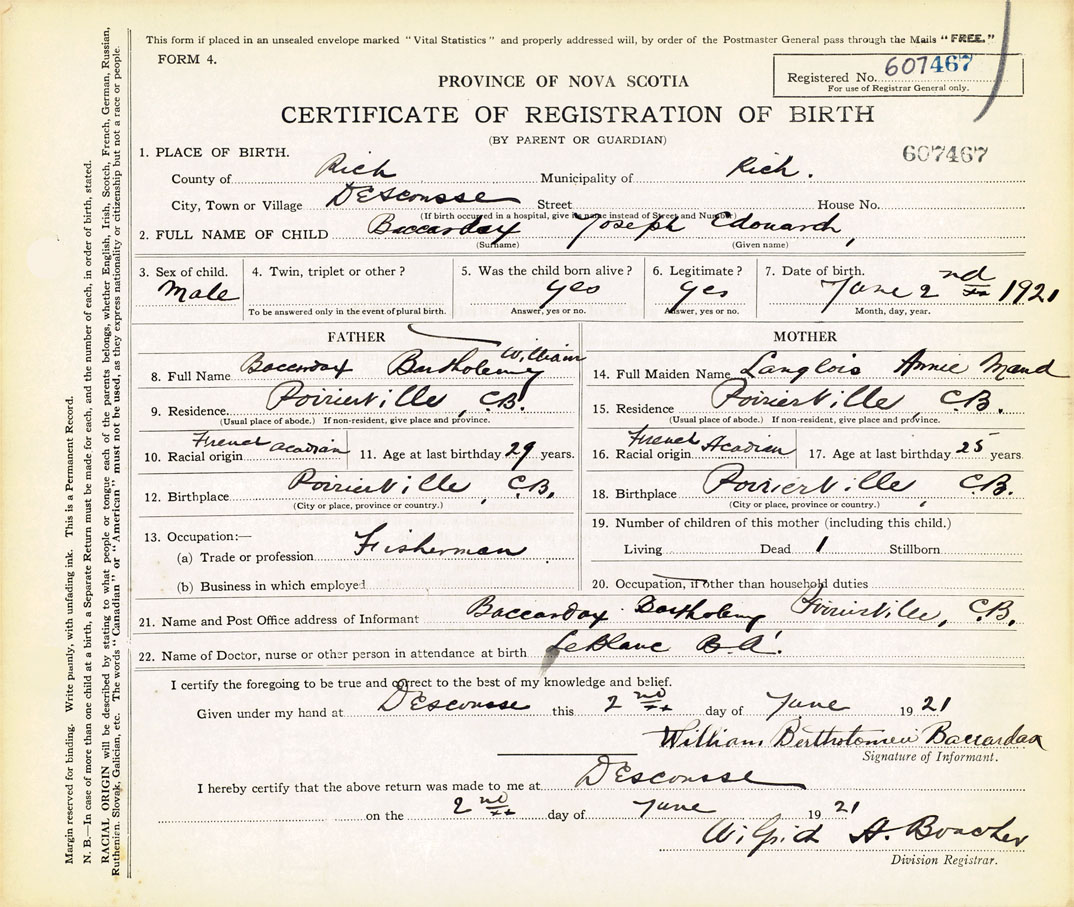 This form if placed in an unsealed envelope marked "Vital Statistics" and properly addressed will, by order of the Postmaster General pass through the Mails "FREE."
FORM 4.
Registered No. 607467
For use of Registrar General only.
PROVINCE OF NOVA SCOTIA
CERTIFICATE OF REGISTRATION OF BIRTH
(BY PARENT OR GUARDIAN)
607467
1. PLACE OF BIRTH.
County of Rich Municipality of Rich.
City, Town or Village DEscousse Street House No.
(If birth occurred in a hospital, give its name instead of Street and Number)
2. FULL NAME OF CHILD Baccardax Joseph Edouard,
(Surname) (Given name)
3. Sex of child. Male
4. Twin, triplet or other?
To be answered only in the event of plural birth.
5. Was the child born alive? yes
Answer, yes or no.
6. Legitimate? yes
Answer, yes or no.
7. Date of birth. June 2nd 1921
Month, day, year.
FATHER
William
8. Full Name Baccardax Bartholemy
9. Residence. Poirierville, C.B.
(Usual place of abode.) If non-resident, give place and province.
10. Racial origin French acadian 11. Age at last birthday 29 years.
12. Birthplace Poirierville, C.B.
(City or place, province or country.)
13. Occupation:—
(a) Trade or profession Fisherman
(b) Business in which employed
MOTHER
14. Full Maiden Name Langlois Annie Maud
15. Residence Poirierville, C.B.
(Usual place of abode.) If non-resident, give place and province.
16. Racial origin French Acadien 17. Age at last birthday 25 years
18. Birthplace Poirierville, C.B.
(City or place, province or country.)
19. Number of children of this mother (including this child.)
Living Dead 1 Stillborn
20. Occupation, if other than household duties
21. Name and Post Office address of Informant Baccardax Bartholemy Poirierville, C.B.
22. Name of Doctor, nurse or other person in attendance at birth LeBlanc B.A.
I certify the foregoing to be true and correct to the best of my knowledge and belief.
Given under my hand at DEscousse this 2nd day of June 1921
William Bertholomew Baccardax
Signature of Informant.
I hereby certify that the above return was made to me at DEscousse
on the 2nd day of June 1921
A. Boucher
Division Registrar.
Margin reserved for binding. Write plainly, with unfading ink. This is a Permanent Record.
N. B.—In case of more than one child at a birth, a Separate Return must be made for each, and the number of each, in order of birth, stated.
RACIAL ORIGIN will be described by stating to what people or tongue each of the parents belongs, whether English, Irish, Scotch, French, German, Russian,
Ruthenian, Slovak, Galician, etc. The words "Canadian" or "American" must not be used, as they express nationality or citizenship but not a race or people.